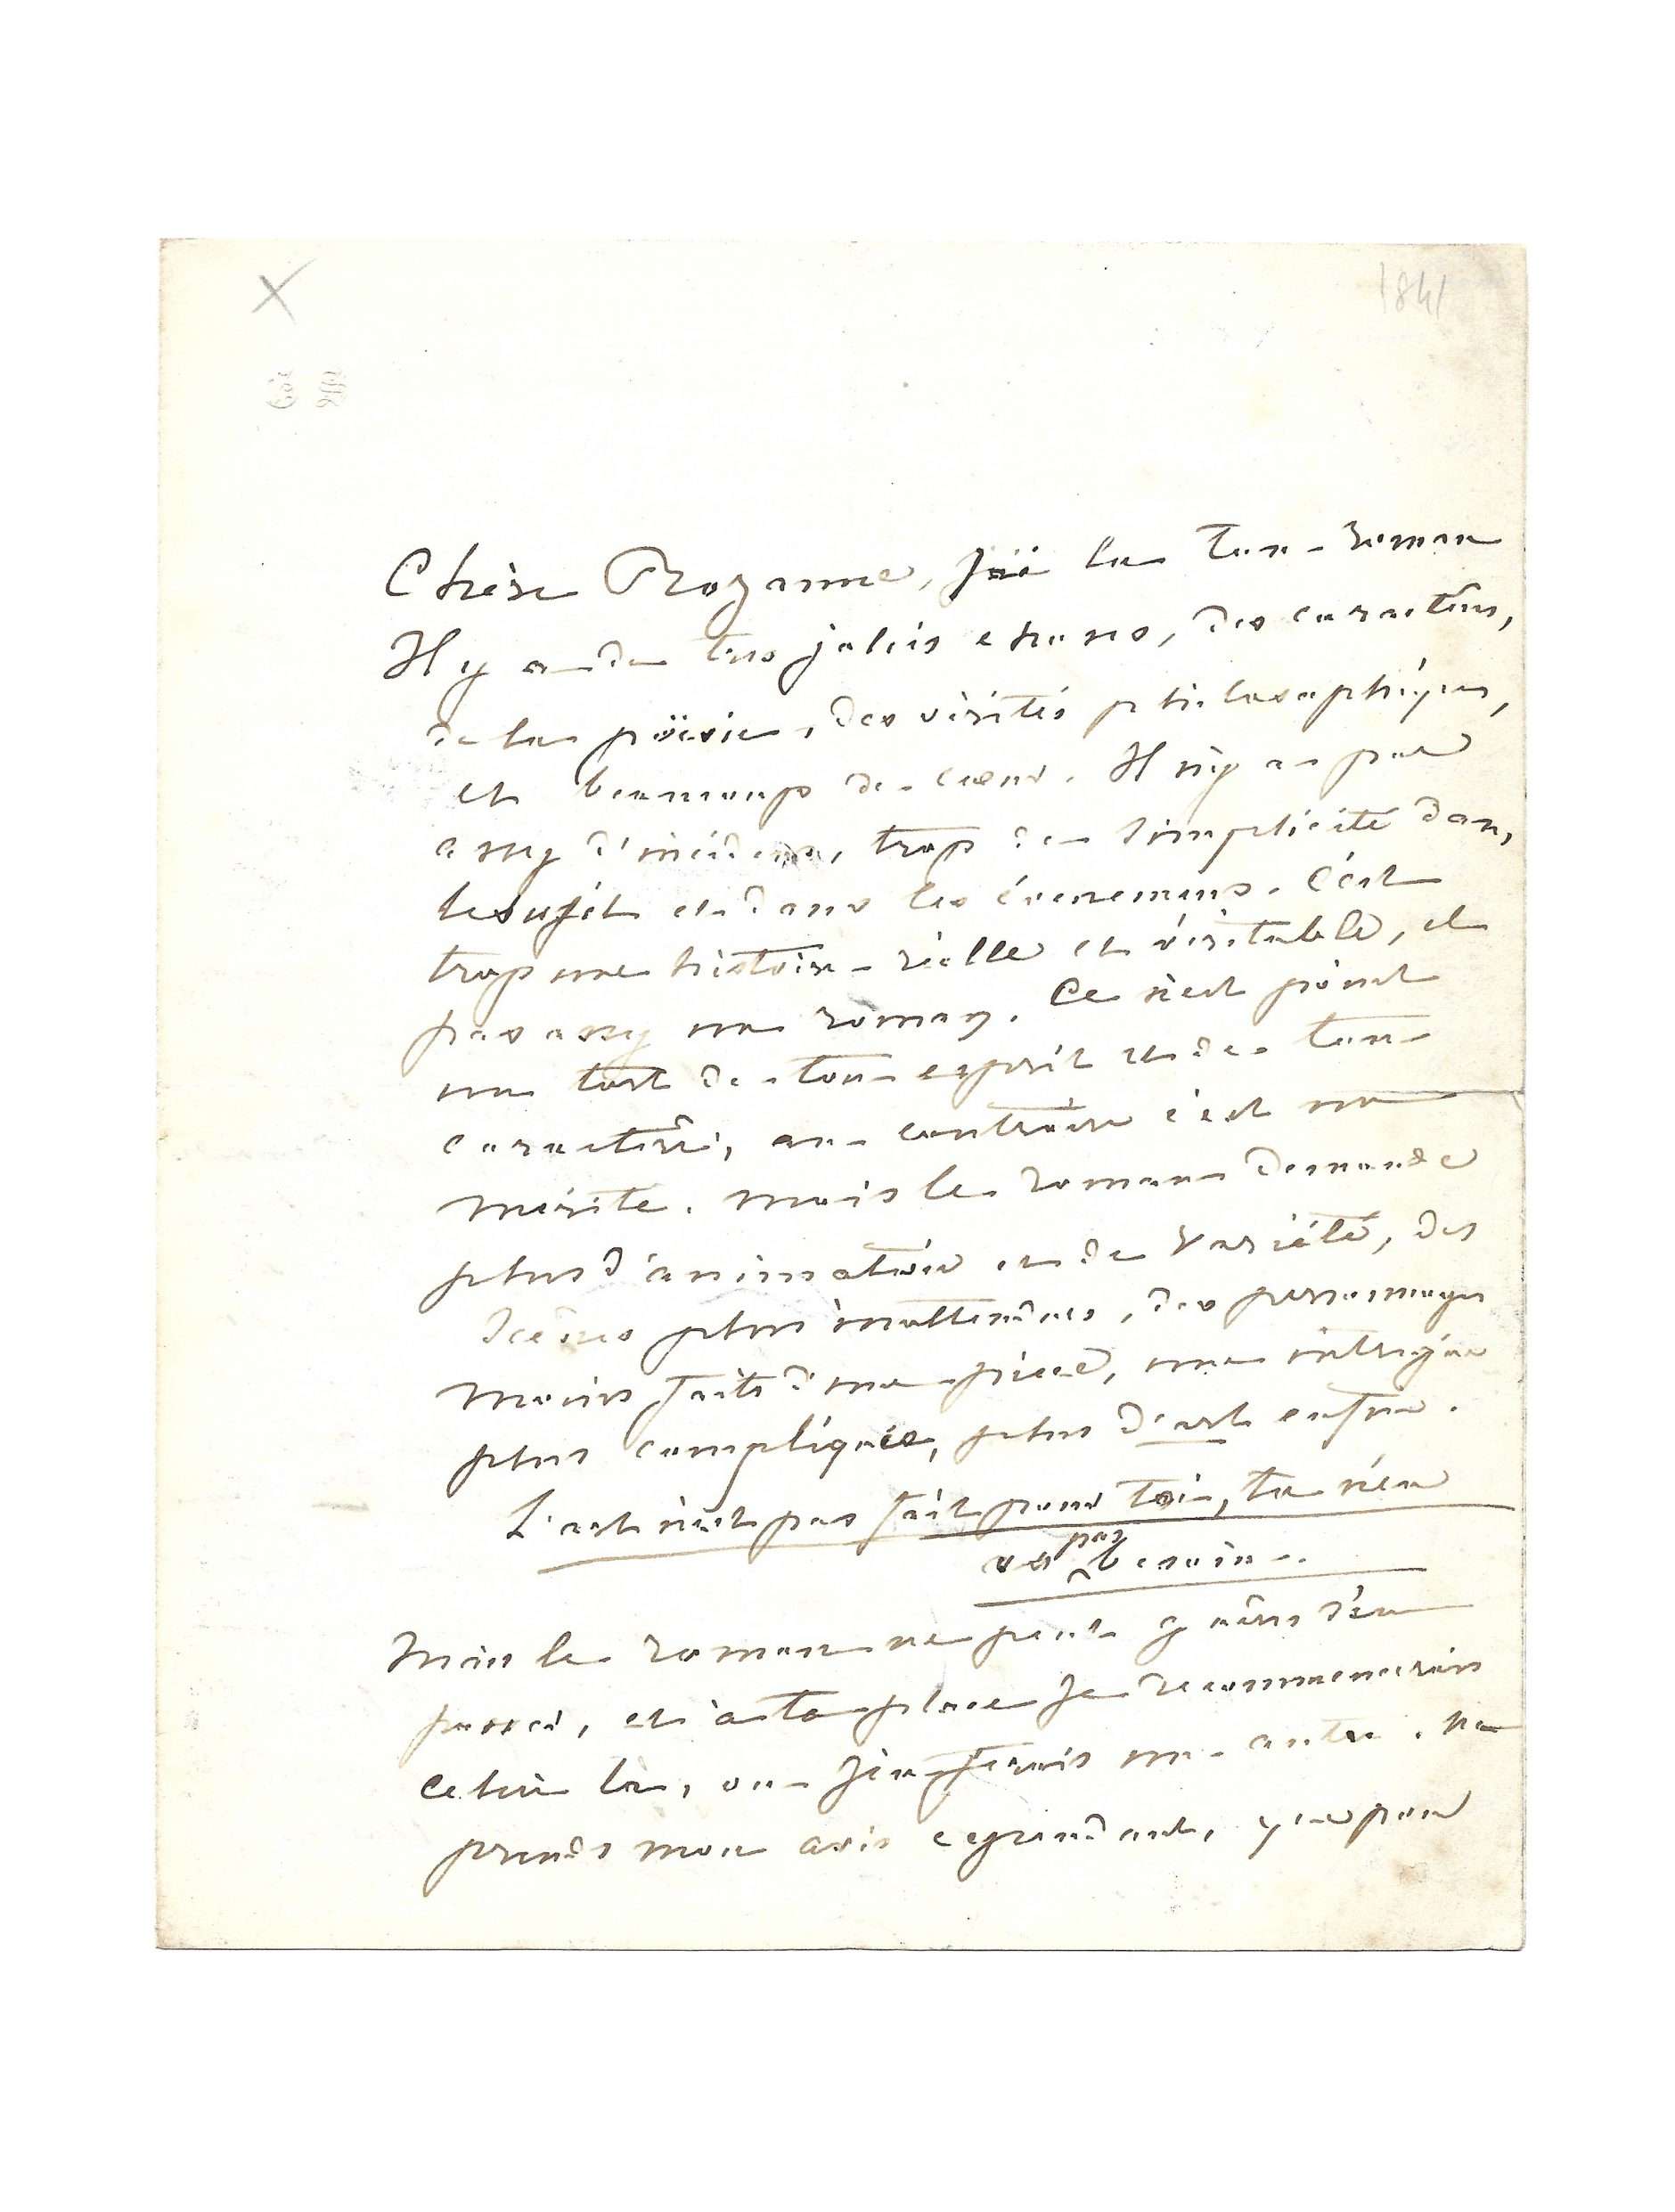 X
1841
GS
Chère Rozanne, j'ai lu ton roman
Il y a de très jolies choses, des caractères,
de la poësie, des vérités philosophiques,
et beaucoup de cœur. Il n'y a pas
assez d'incidens, trop de simplicité dans
le sujet et dans les évenemens. C'est
trop une histoire réelle et véritable, et
pas assez un roman. Ce n'est point
un tort de ton esprit et de ton
caractère, au contraire c'est un
mérite. mais le roman demande
plus d'animation et de variété, des
scènes plus inattendues, des personnages
moins faits d'une pièce, une intrigue
plus compliquée, plus d'art enfin.
L'art n'est pas fait pour toi, tu n'en
as pas besoin.
Mais le roman ne peut guères s'en
passer, et à ta place je recommencerais
celui là, ou j'en ferais un autre. Ne
prends mon avis cependant, que pour